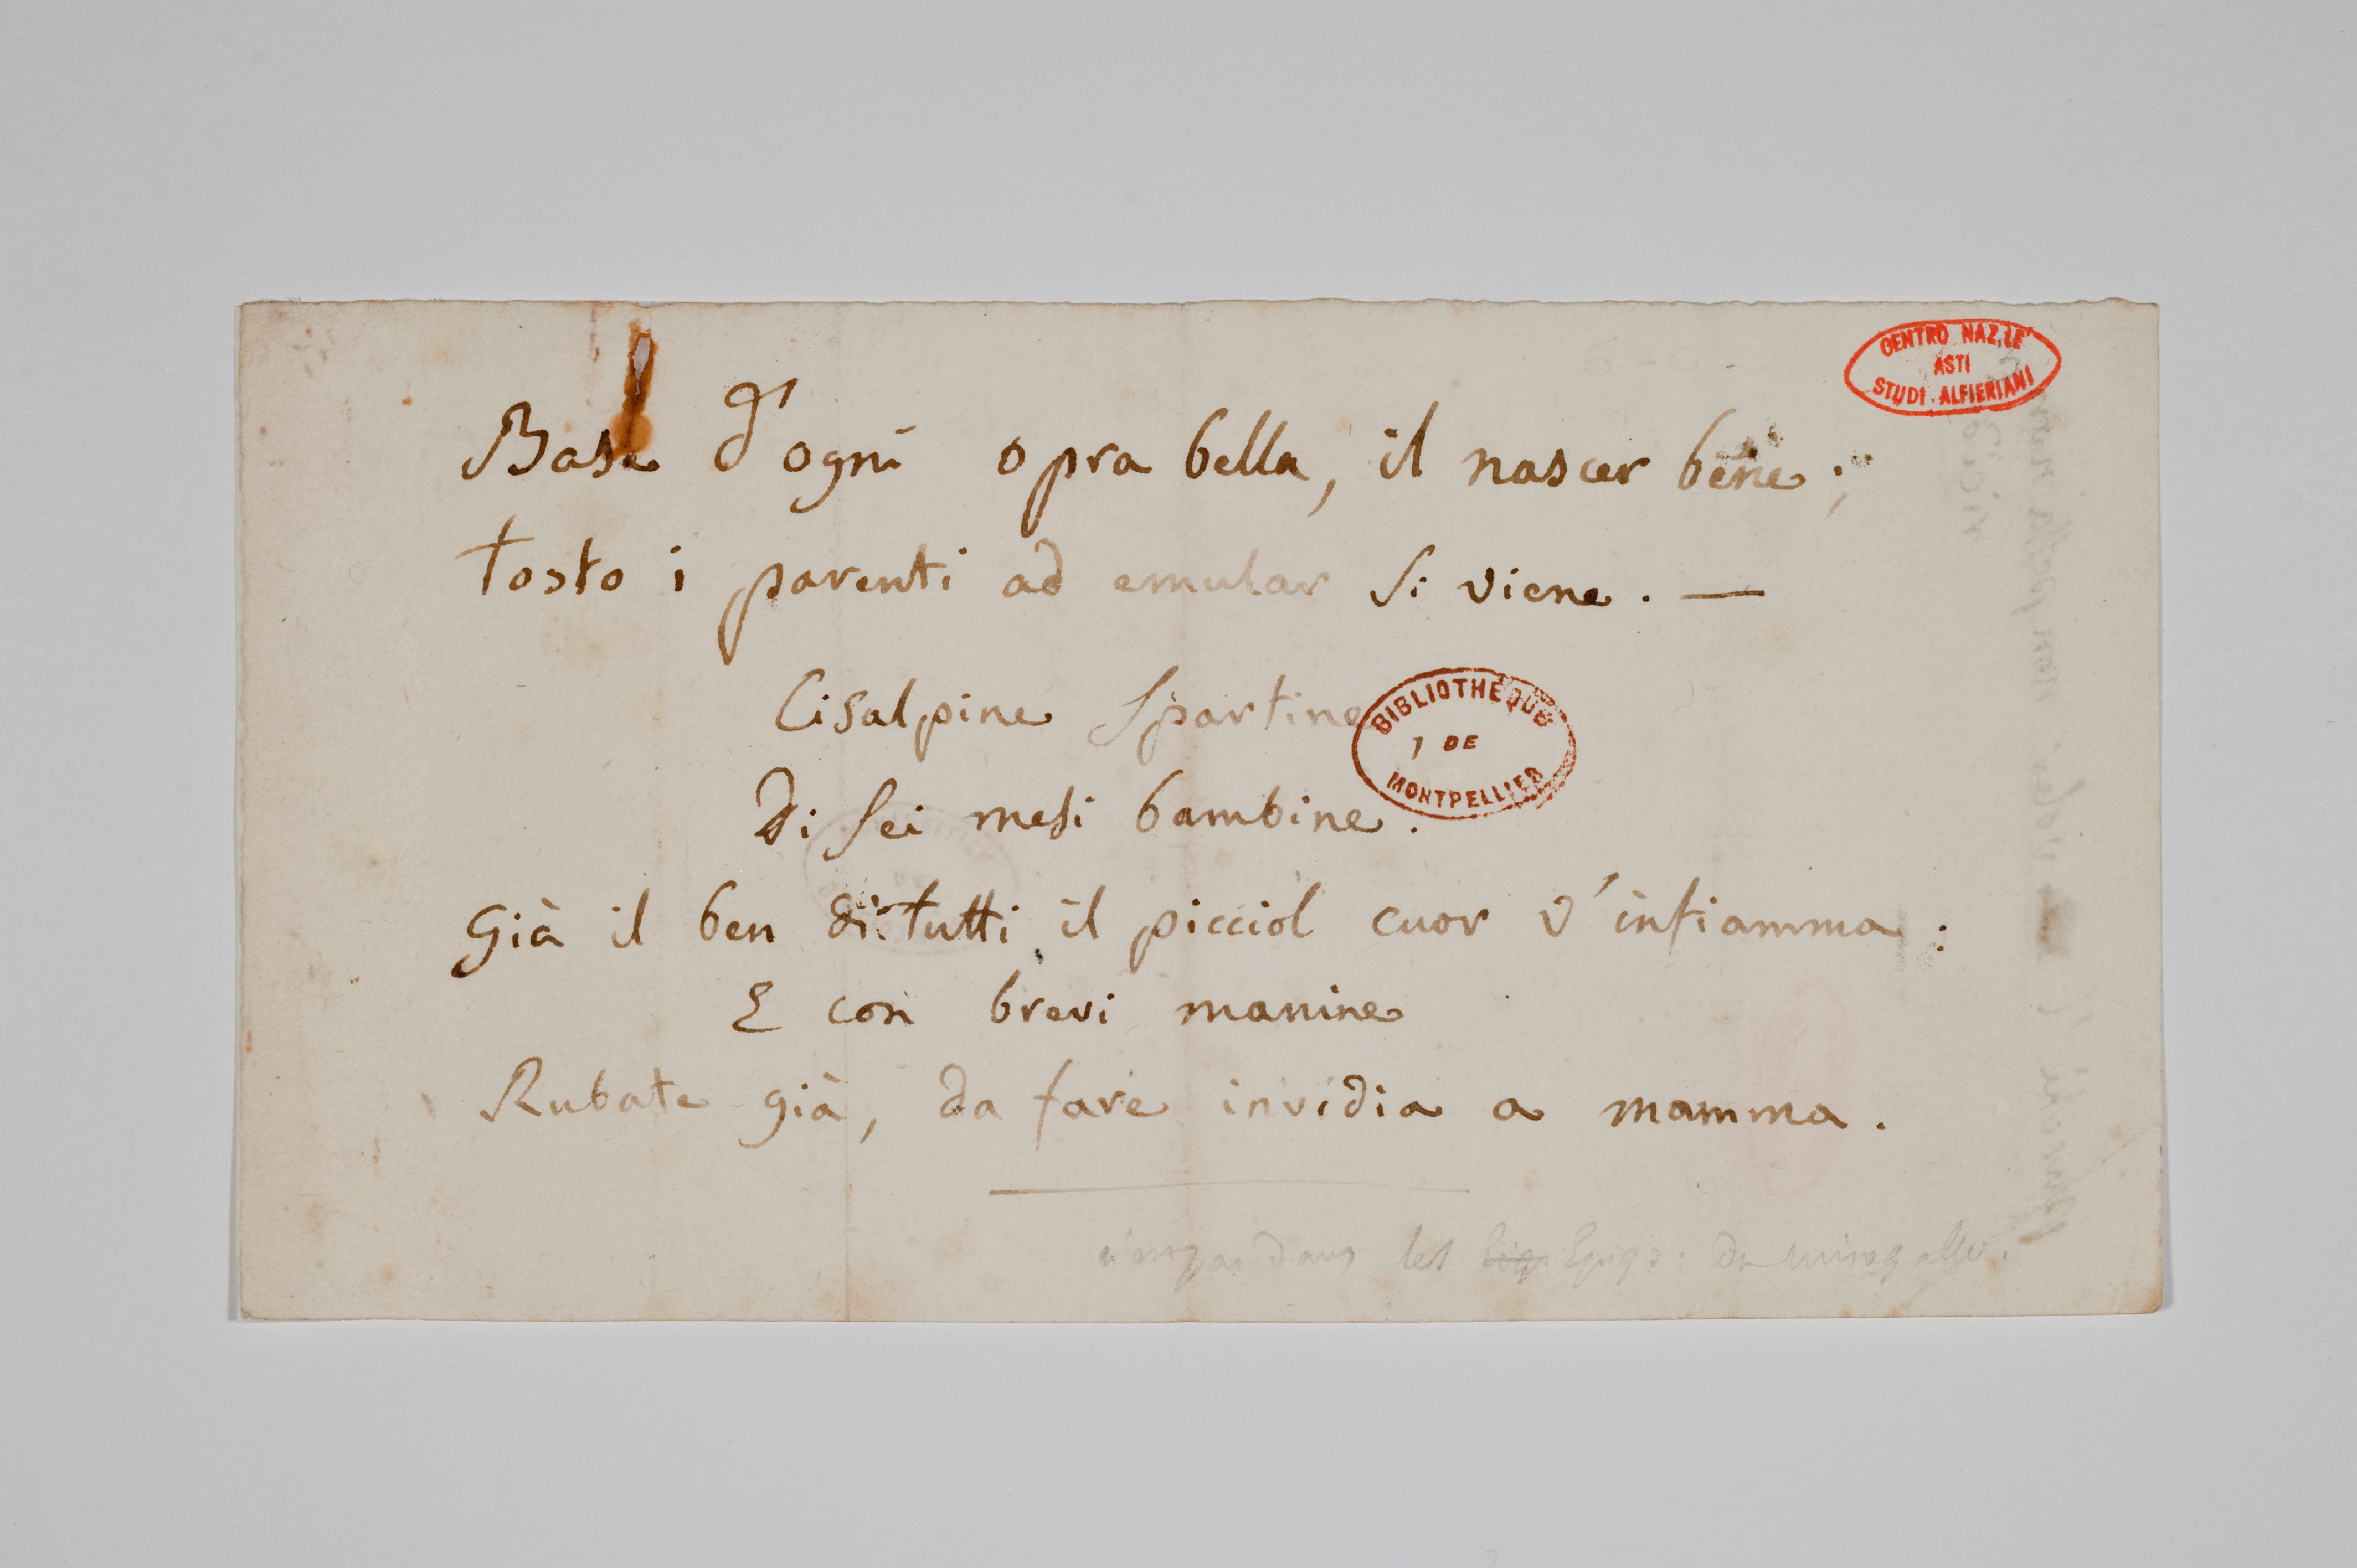 CENTRO NAZ.LE
ASTI
STUDI ALFIERIANI
Base d'ogni opra bella, il nascer bene;
Tosto i parenti ad emular si viene. —
Cisalpine Spartine,
BIBLIOTHEQUE
DE
MONTPELLIER
Di sei mesi bambine.
Già il ben di tutti il picciol cuor v'infiamma:
E con brevi manine
Rubate già, da fare invidia a mamma.
n'est pas dans les Epigr: du misogallo.